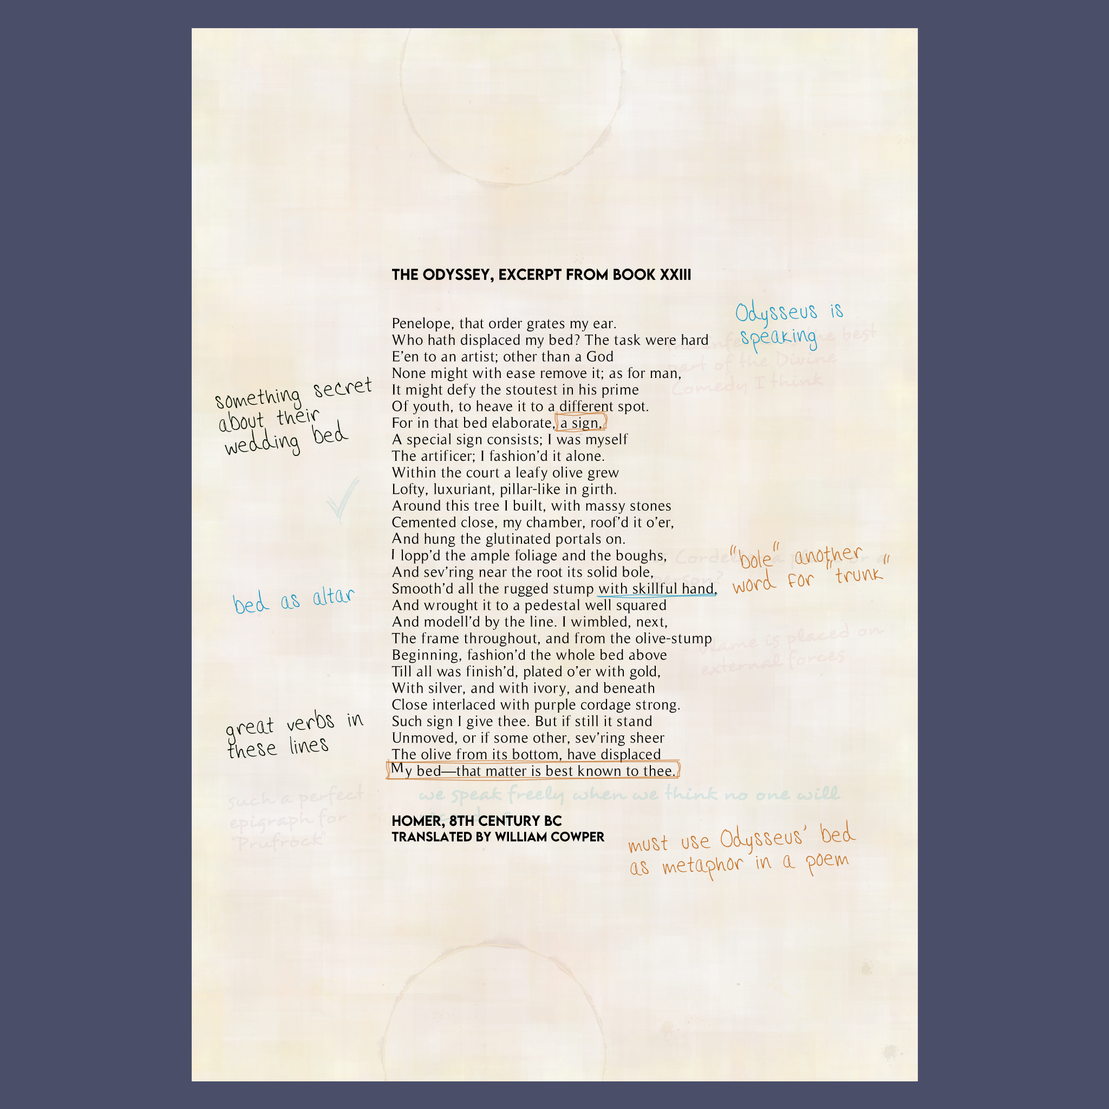 THE ODYSSEY, EXCERPT FROM BOOK XXIII
Odysseus is
speaking
Penelope, that order grates my ear.
Who hath displaced my bed? The task were hard
E'en to an artist; other than a God
None might with ease remove it; as for man,
It might defy the stoutest in his prime
Of youth, to heave it to a different spot.
For in that bed elaborate, a sign,
A special sign consists; I was myself
The artificer; I fashion'd it alone.
Within the court a leafy olive grew
Lofty, luxuriant, pillar-like in girth.
Around this tree I built, with massy stones
Cemented close, my chamber, roof'd it o'er,
And hung the glutinated portals on.
I lopp'd the ample foliage and the boughs,
And sev'ring near the root its solid bole,
Smooth'd all the rugged stump with skillful hand,
And wrought it to a pedestal well squared
And modell'd by the line. I wimbled, next,
The frame throughout, and from the olive-stump
Beginning, fashion'd the whole bed above
Till all was finish'd, plated o'er with gold,
With silver, and with ivory, and beneath
Close interlaced with purple cordage strong.
Such sign I give thee. But if still it stand
Unmoved, or if some other, sev'ring sheer
The olive from its bottom, have displaced
My bed—that matter is best known to thee.
the best
of the Divine
Comedy I think
something secret
about their
wedding bed
"bole" another
word for "trunk"
bed as altar
blame is placed on
external forces
great verbs in
these lines
such a perfect
epigraph for
Prufrock
we speak freely when we think no one will
HOMER, 8TH CENTURY BC
TRANSLATED BY WILLIAM COWPER
must use Odysseus' bed
as metaphor in a poem